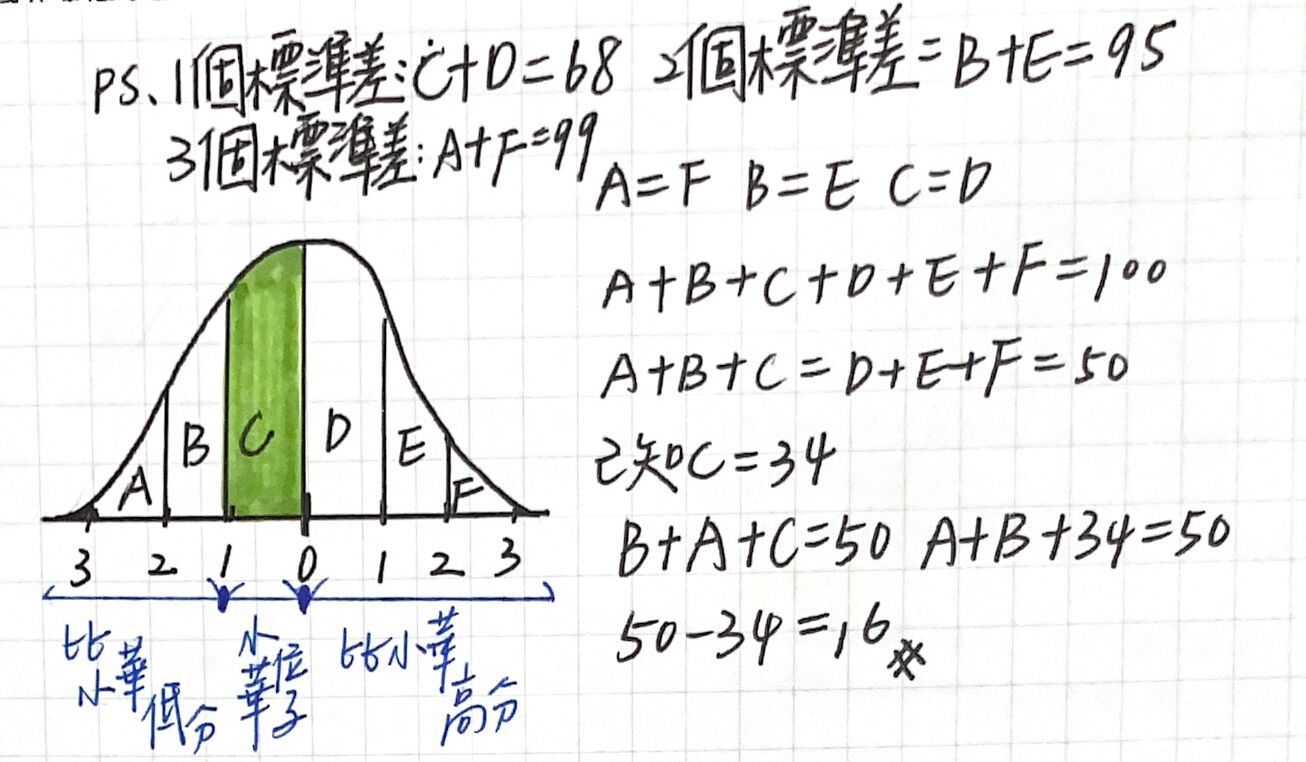 PS、1個標準差:C+D=68 2個標準差=B+E=95
3個標準差:A+F=99
A=F B=E C=D
A+B+C+D+E+F=100
A+B+C=D+E+F=50
已知C=34
B+A+C=50 A+B+34=50
50-34=16
A B C D E F
3 2 1 0 1 2 3
比小華低分
小華位子
比小華高分